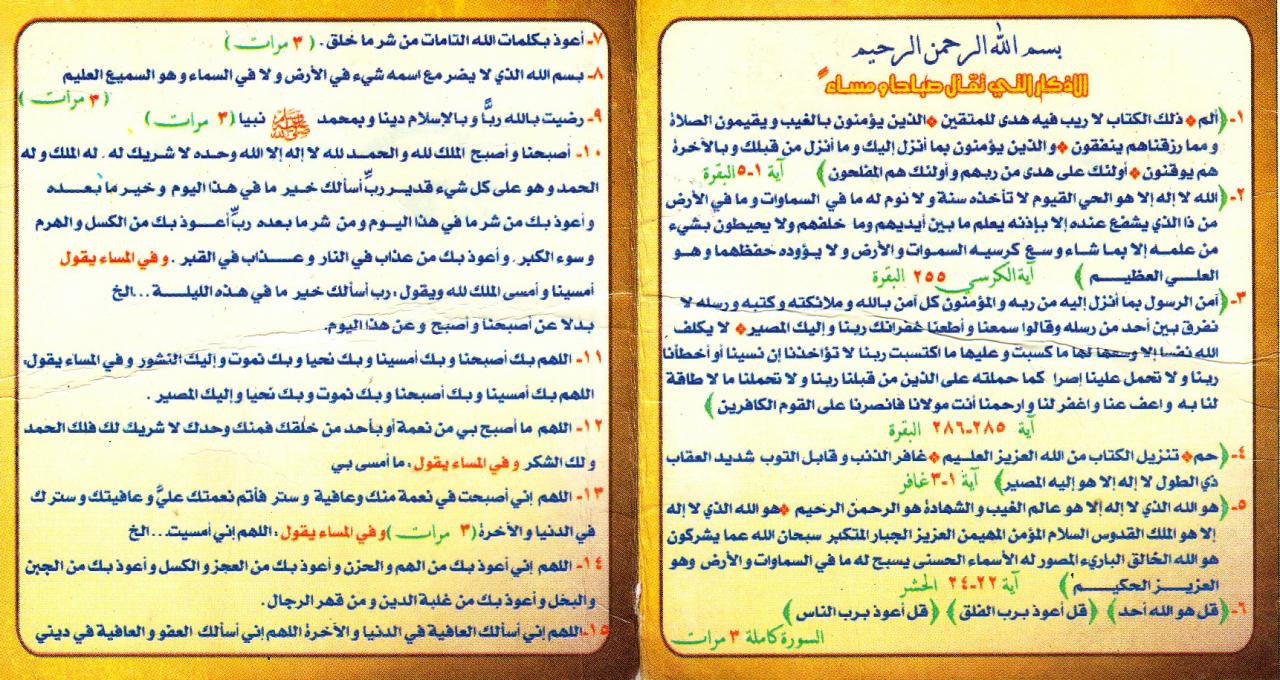 بسم الله الرحمن الرحيم
الأذكار التي تقال صباحا و مساءً
١- (ألم * ذلك الكتاب لا ريب فيه هدى للمتقين * الذين يؤمنون بالغيب و يقيمون الصلاة
و مما رزقناهم ينفقون * و الذين يؤمنون بما أنزل إليك و ما أنزل من قبلك و بالآخرة
هم يوقنون * أولئك على هدى من ربهم و أولئك هم المفلحون) آية ١-٥ البقرة
٢- (الله لا إله إلا هو الحي القيوم لا تأخذه سنة و لا نوم له ما في السماوات و ما في الأرض
من ذا الذي يشفع عنده إلا بإذنه يعلم ما بين أيديهم وما خلفهم ولا يحيطون بشيء
من علمه إلا بما شاء و سع كرسيه السموات و الأرض و لا يؤوده حفظهما و هو
العلي العظيم) آية الكرسي ٢٥٥ البقرة
٣- (آمن الرسول بما أنزل إليه من ربه و المؤمنون كل آمن بالله و ملائكته و كتبه و رسله لا
نفرق بين أحد من رسله وقالوا سمعنا و أطعنا غفرانك ربنا و إليك المصير * لا يكلف
الله نفسا إلا وسعها لها ما كسبت و عليها ما اكتسبت ربنا لا تؤاخذنا إن نسينا أو أخطأنا
ربنا و لا تحمل علينا إصرا كما حملته على الذين من قبلنا ربنا و لا تحملنا ما لا طاقة
لنا به و اعف عنا و اغفر لنا و ارحمنا أنت مولانا فانصرنا على القوم الكافرين)
آية ٢٨٥-٢٨٦ البقرة
٤- (حم * تنزيل الكتاب من الله العزيز العليم * غافر الذنب و قابل التوب شديد العقاب
ذي الطول لا إله إلا هو إليه المصير) آية ١-٣ غافر
٥- (هو الله الذي لا إله إلا هو عالم الغيب و الشهادة هو الرحمن الرحيم * هو الله الذي لا إله
إلا هو الملك القدوس السلام المؤمن المهيمن العزيز الجبار المتكبر سبحان الله عما يشركون
هو الله الخالق الباريء المصور له الأسماء الحسنى يسبح له ما في السماوات و الأرض وهو
العزيز الحكيم) آية ٢٢-٢٤ الحشر
٦- (قل هو الله أحد) (قل أعوذ برب الفلق) (قل أعوذ برب الناس)
السورة كاملة ٣ مرات
٧- أعوذ بكلمات الله التامات من شر ما خلق. (٣ مرات)
٨- بسم الله الذي لا يضر مع اسمه شيء في الأرض و لا في السماء و هو السميع العليم
(٣ مرات)
٩- رضيت بالله ربًّا و بالإسلام دينا و بمحمد ﷺ نبيا (٣ مرات)
١٠- أصبحنا و أصبح الملك لله و الحمد لله لا إله إلا الله وحده لا شريك له. له الملك و له
الحمد و هو على كل شيء قدير ربِّ أسألك خير ما في هذا اليوم و خير ما بعده
و أعوذ بك من شر ما في هذا اليوم و من شر ما بعده ربِّ أعوذ بك من الكسل و الهرم
و سوء الكبر. و أعوذ بك من عذاب في النار و عذاب في القبر. و في المساء يقول
أمسينا و أمسى الملك لله ويقول: رب أسألك خير ما في هذه الليلة ...الخ
بدلا عن أصبحنا و أصبح و عن هذا اليوم.
١١- اللهم بك أصبحنا و بك أمسينا و بك نحيا و بك نموت و إليك النشور و في المساء يقول:
اللهم بك أمسينا و بك أصبحنا و بك نموت و بك نحيا و إليك المصير.
١٢- اللهم ما أصبح بي من نعمة أو بأحد من خلقك فمنك وحدك لا شريك لك فلك الحمد
و لك الشكر و في المساء يقول: ما أمسى بي
١٣- اللهم إني أصبحت في نعمة منك وعافية و ستر فأتم نعمتك عليَّ و عافيتك و سترك
في الدنيا و الآخرة (٣ مرات) و في المساء يقول: اللهم إني أمسيت...الخ
١٤- اللهم إني أعوذ بك من الهم و الحزن و أعوذ بك من العجز و الكسل و أعوذ بك من الجبن
والبخل و أعوذ بك من غلبة الدين و من قهر الرجال.
١٥- اللهم إني أسألك العافية في الدنيا و الآخرة اللهم إني أسألك العفو و العافية في ديني